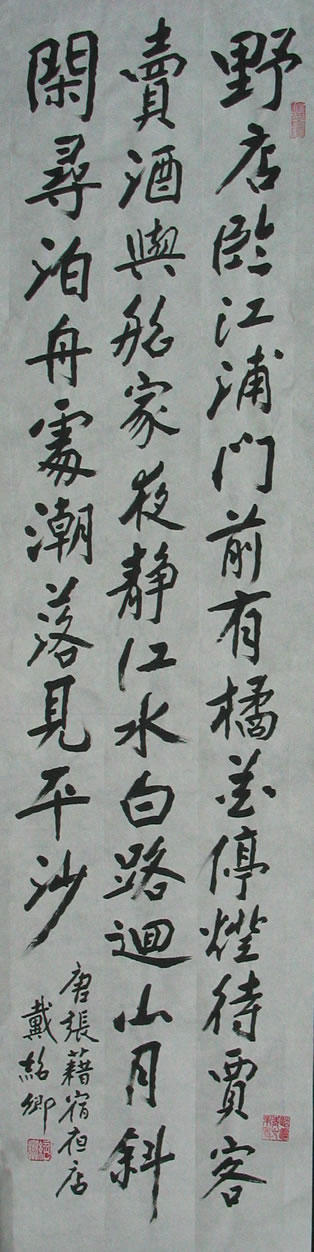 野店臨江浦門前有橘花停燈待賈客
賣酒與船家夜靜江水白路迴山月斜
閑尋泊舟處潮落見平沙
唐張藉宿夜店
戴紹鄉